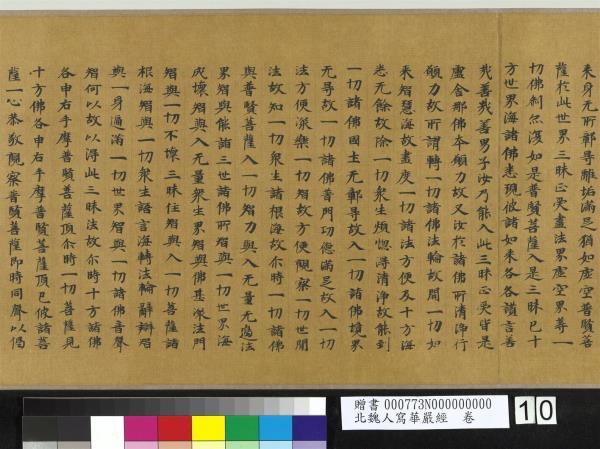 来身无所鄣导離垢滿足猶如虛空普賢菩
薩於此世界三昧正受盡法界虛空界等一
切佛剎亦復如是普賢菩薩入是三昧已十
方世界海諸佛悉現彼諸如来各各讃言善
哉善哉善男子汝乃能入此三昧正受皆是
盧舍那佛本願力故又汝於諸佛所清淨行
願力故所謂轉一切諸佛法輪故開一切如
来智慧海故盡度一切諸法方便及十方海
悉无餘故除一切衆生煩惱得清淨故能到
一切諸佛國土无鄣导故入一切諸佛境界
无导故一切諸佛普門功德滿足故入一切
法方便深樂一切智故方便觀察一切世間
法故知一切衆生諸根海故尒時一切諸佛
與普賢菩薩入一切智力與入无量无邊法
界智與能詣三世諸佛所智與一切世界海
成壞智與入无量衆生界智與佛甚深法門
智與一切不壞三昧住智與入一切菩薩諸
根海智與一切衆生語言海轉法輪辭辯智
與一身遍滿一切世界智與一切諸佛音聲
智何以故以得此三昧法故尒時十方諸佛
各申右手摩普賢菩薩頂尒時一切菩薩見
十方佛各申右手摩普賢菩薩頂已彼諸菩
薩一心恭敬觀察普賢菩薩即時同聲以偈
贈書 000773N000000000
北魏人寫華嚴經　卷
10